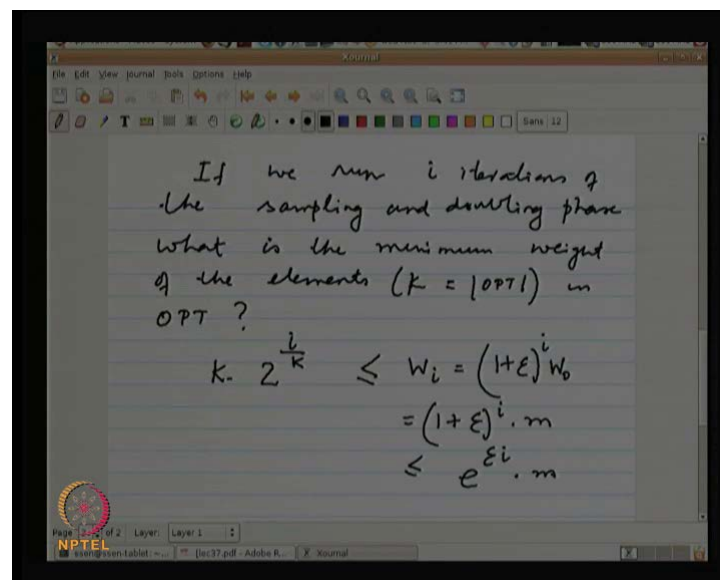 Xournal
File Edit View Journal Tools Options Help
Sans 12
If we run i iterations of
the sampling and doubling phase
what is the minimum weight
of the elements (K = |OPT|) in
OPT ?
K. 2^{i/K} ≤ W_i = (1+ε)^i W_0
= (1+ε)^i . m
≤ e^{εi} . m
Page of 2 Layer: Layer 1
NPTEL
[lec37.pdf - Adobe R... Xournal